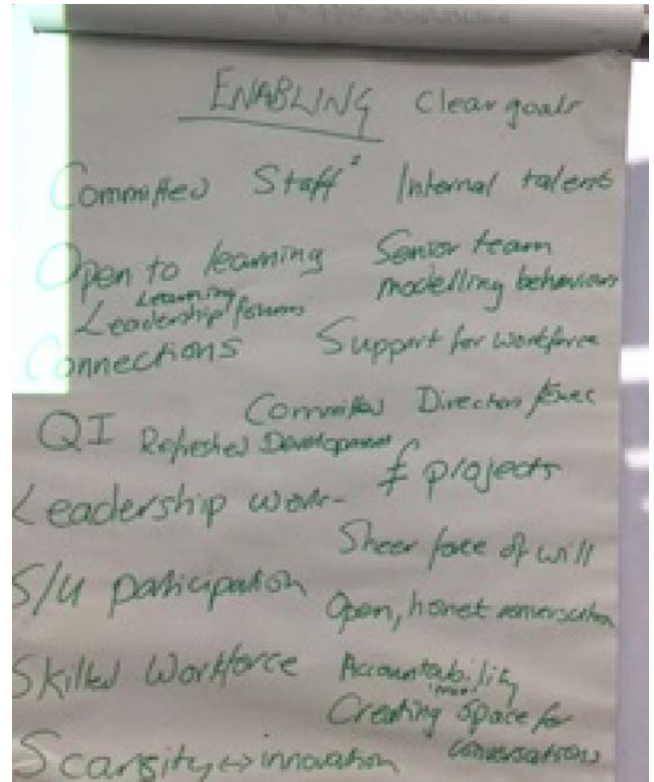 ENABLING Clear goals
Committed Staff Internal talent
Open to learning Senior team
modelling behaviours
Learning
Leadership forums
Connections Support for workforce
Committed Directors/Exec
QI Refreshed Development
£ projects
Leadership work
Sheer force of will
S/U participation
Open, honest conversation
Skilled Workforce Accountability
Creating space for
conversations
Scarsity ↔ innovation